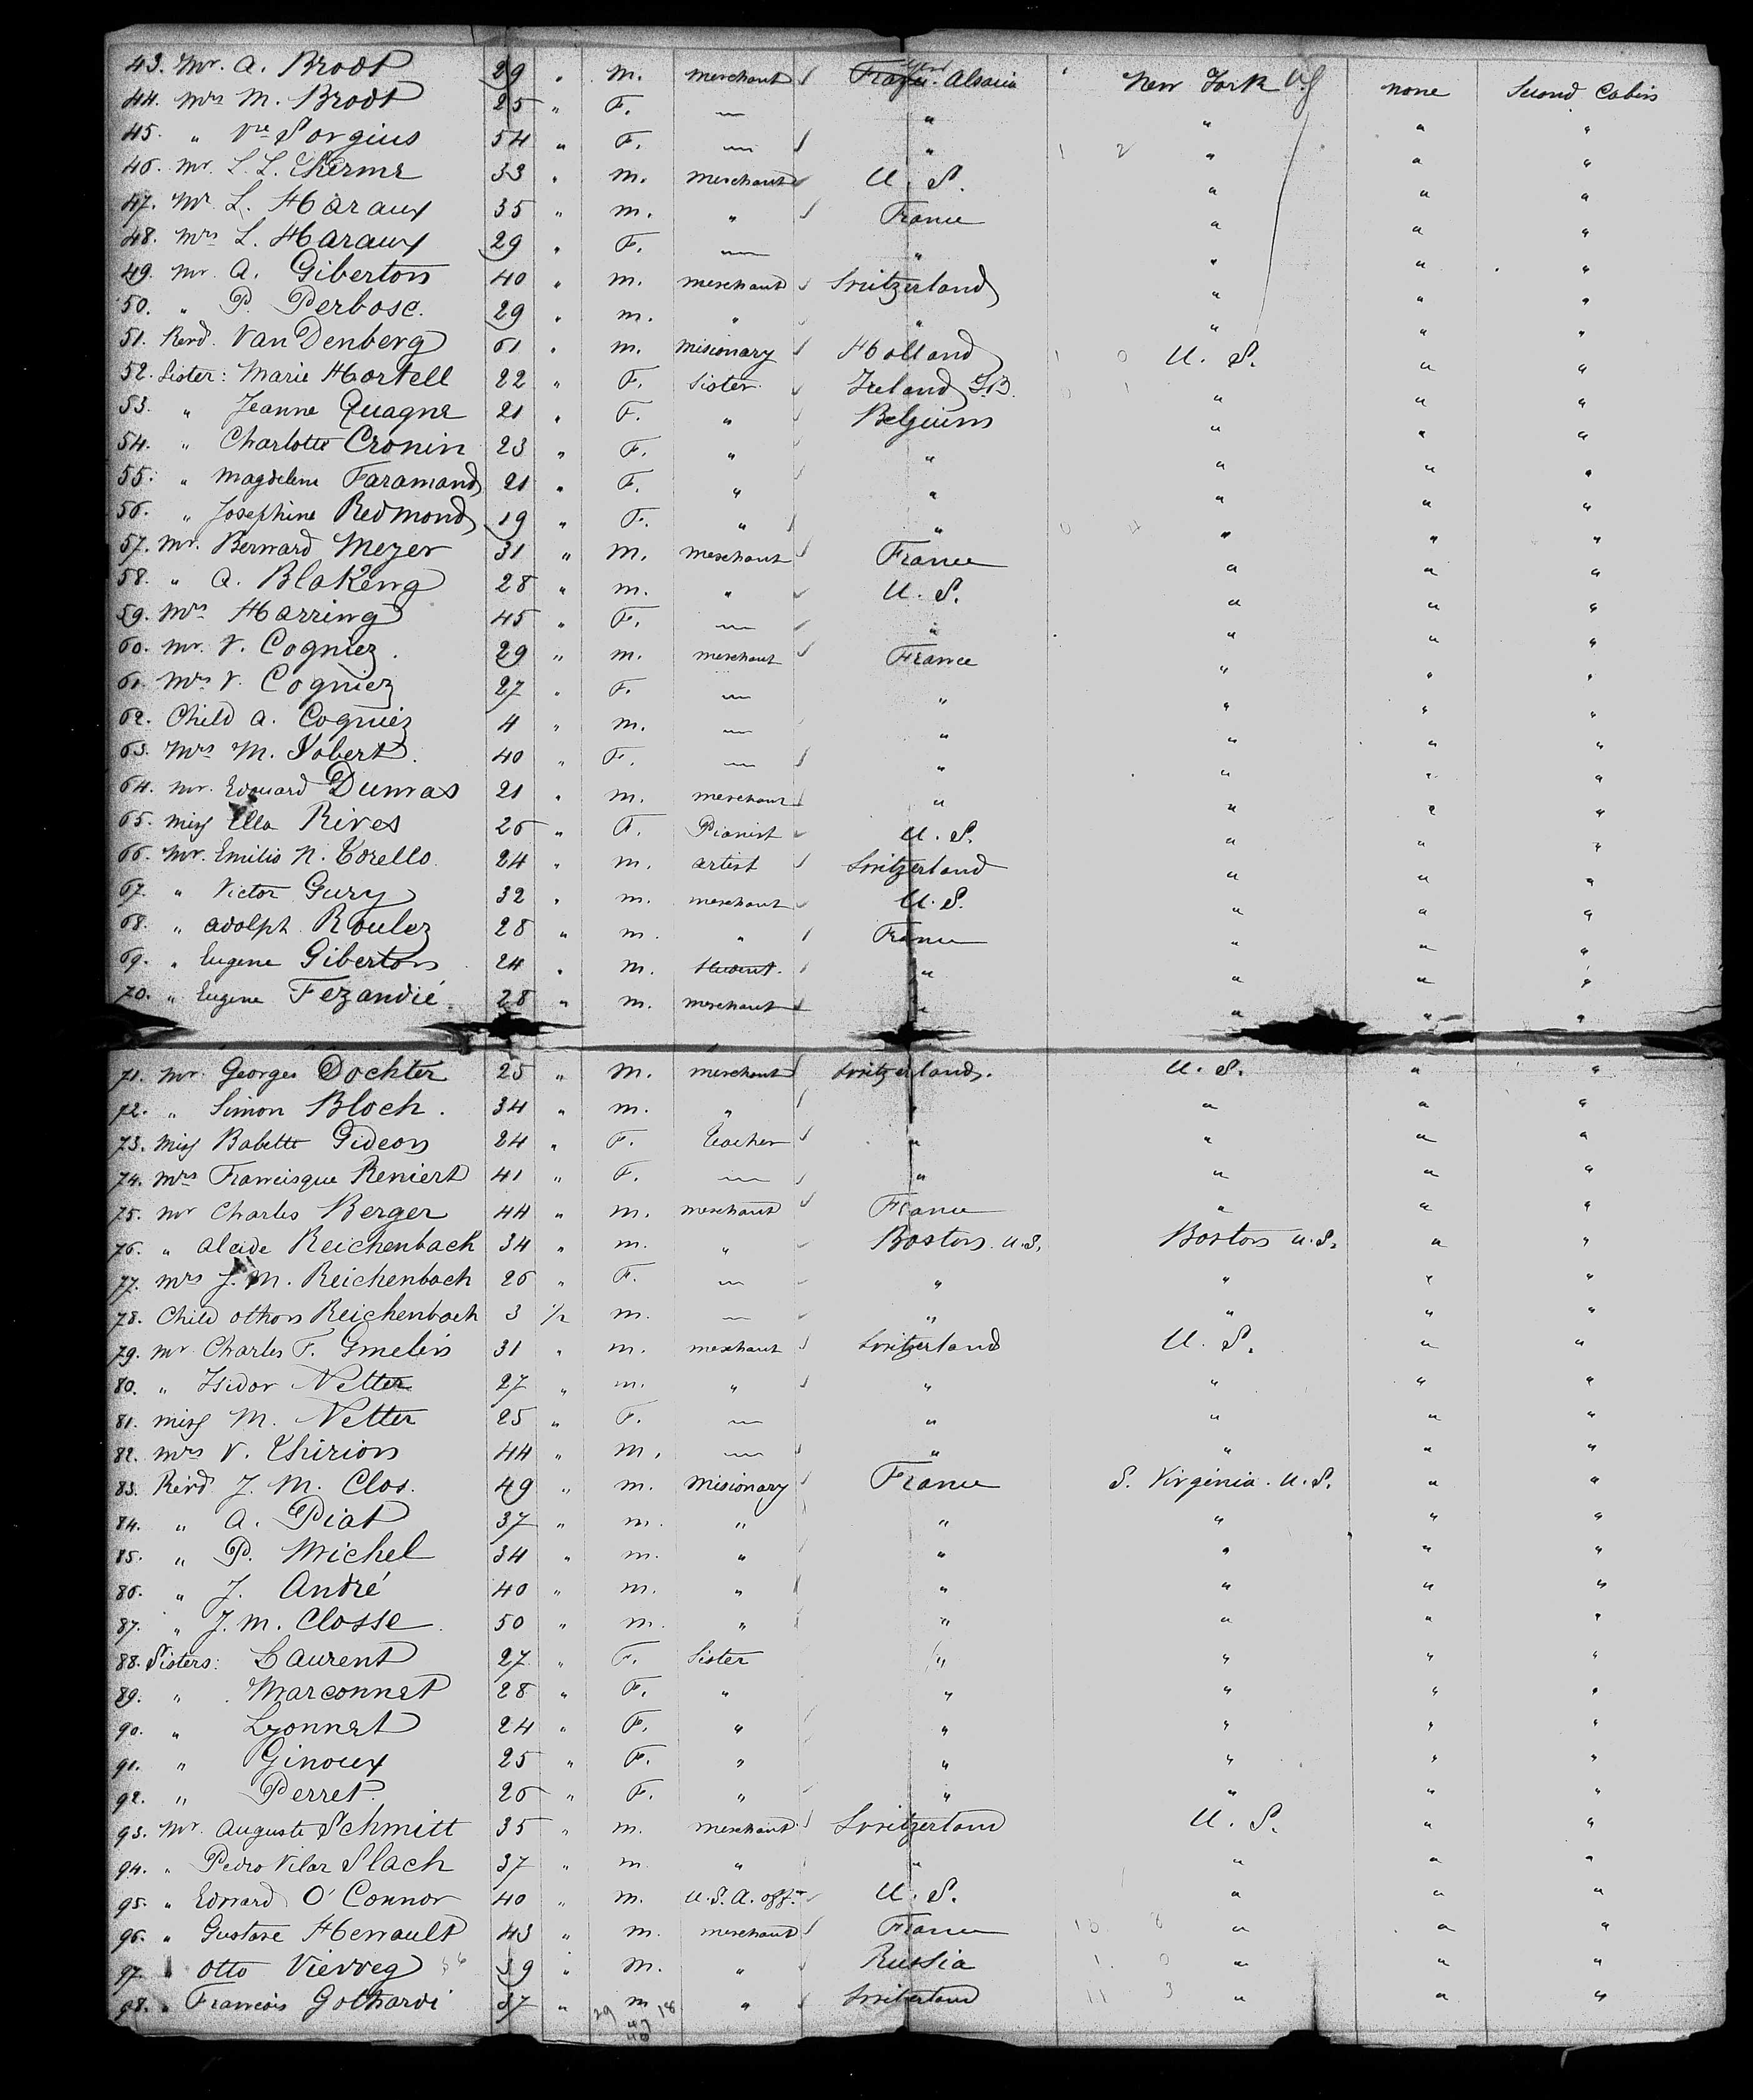 43. Mr. A. Brodt 29 " M. merchant France. Alsacia New York US none Second Cabin
44. Mrs M. Brodt 25 " F. — " " " "
45. " Vve Sorgius 54 " F. — " " " "
46. Mr. L. L. Therme 33 " M. merchant U. S. " " "
47. Mr. L. Haraux 35 " M. " France " " "
48. Mrs L. Haraux 29 " F. — " " " "
49. Mr. A. Giberton 40 " M. merchant Switzerland " " "
50. " P. Perbosc. 29 " M. " " " " "
51. Revd. Van Denberg 61 " M. Misionary Holland U. S. " "
52. Sister: Marie Hortell 22 " F. Sister Ireland G.B. " " "
53. " Jeanne Quagne 21 " F. " Belgium " " "
54. " Charlotte Cronin 23 " F. " " " " "
55. " Magdelene Faramand 21 " F. " " " " "
56. " Josephine Redmond 19 " F. " " " " "
57. Mr. Bernard Meyer 31 " M. merchant France " " "
58. " A. Blakeng 28 " M. " U. S. " " "
59. Mrs Harring 45 " F. — " " " "
60. Mr. V. Cogniez. 29 " M. merchant France " " "
61. Mrs V. Cogniez 27 " F. — " " " "
62. Child A. Cogniez 4 " M. — " " " "
63. Mrs M. Vobert. 40 " F. — " " " "
64. Mr. Edouard Dumas 21 " M. merchant " " " "
65. Miss Ella Rives 26 " F. Pianist U. S. " " "
66. Mr. Emilio N. Torello 24 " M. artist Switzerland " " "
67. " Victor Gury 32 " M. merchant U. S. " " "
68. " Adolph Roulez 28 " M. " France " " "
69. " Eugene Giberton 24 " M. Student. " " " "
70. " Eugene Fezandié 28 " M. merchant " " " "
71. Mr. Georges Dochter 25 " M. merchant Switzerland. U. S. " "
72. " Simon Bloch. 34 " M. " " " " "
73. Miss Babette Gideon 24 " F. Teacher " " " "
74. Mrs Francisque Reniert 41 " F. — " " " "
75. Mr Charles Berger 44 " M. merchant France " " "
76. " Alcide Reichenbach 34 " M. " Boston. U.S. Boston U.S. " "
77. Mrs J. M. Reichenbach 26 " F. — " " " "
78. Child Othon Reichenbach 3 1/2 M. — " " " "
79. Mr Charles F. Gmelin 31 " M. merchant Switzerland U. S. " "
80. " Isidor Netter 27 " M. " " " " "
81. Miss M. Netter 25 " F. — " " " "
82. Mrs V. Thirion 44 " M. — " " " "
83. Revd. J. M. Clos. 49 " M. Misionary France S. Virginia. U. S. " "
84. " A. Piat 37 " M. " " " " "
85. " P. Michel 34 " M. " " " " "
86. " J. André 40 " M. " " " " "
87. " J. M. Closse 50 " M. " " " " "
88. Sisters: Laurent 27 " F. Sister " " " "
89. " Marconnet 28 " F. " " " " "
90. " Lyonnet 24 " F. " " " " "
91. " Ginoux 25 " F. " " " " "
92. " Perret. 26 " F. " " " " "
93. Mr. Auguste Schmitt 35 " M. merchant Switzerland U. S. " "
94. " Pedro Vilar Slach 37 " M. " " " " "
95. " Edward O'Connor 40 " M. U.S.A. offr. U. S. " " "
96. " Gustave Herrault 43 " M. merchant France 18 8 " " "
97. Otto Vierveg 39 " M. " Russia 1. 0 " " "
98. " Francois Gothardi 37 " M " Switzerland 11 3 " " "
29 18